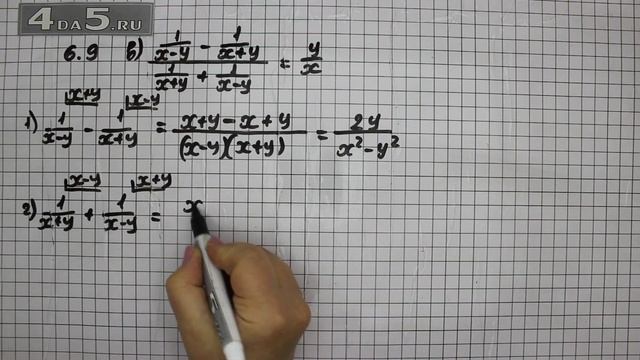 4DA5.RU
6.9 в) (1/(x-y) - 1/(x+y)) / (1/(x+y) + 1/(x-y)) = y/x
x+y x-y
1) 1/(x-y) - 1/(x+y) = (x+y-x+y)/((x-y)(x+y)) = 2y/(x²-y²)
x-y x+y
2) 1/(x+y) + 1/(x-y) = x